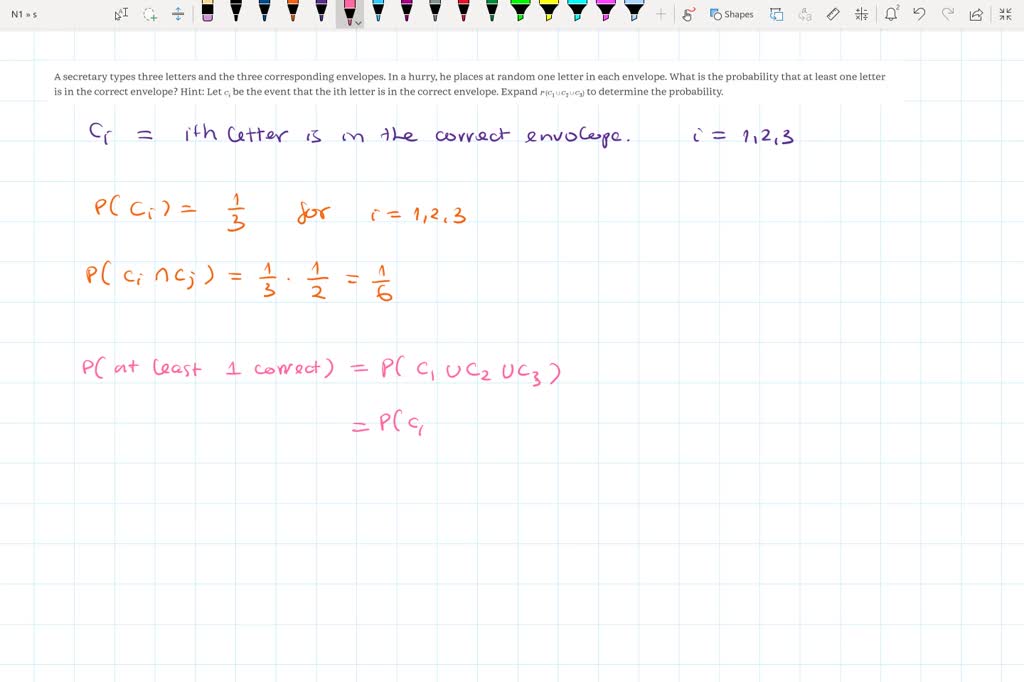 N1 » s
Shapes
2
A secretary types three letters and the three corresponding envelopes. In a hurry, he places at random one letter in each envelope. What is the probability that at least one letter
is in the correct envelope? Hint: Let cᵢ be the event that the ith letter is in the correct envelope. Expand P(c₁∪c₂∪c₃) to determine the probability.
Cᵢ = ith letter is in the correct envolope. i = 1,2,3
P(Cᵢ) = 1/3 for i = 1,2,3
P(Cᵢ ∩ Cⱼ) = 1/3 · 1/2 = 1/6
P(at least 1 correct) = P(C₁ ∪ C₂ ∪ C₃)
= P(C₁